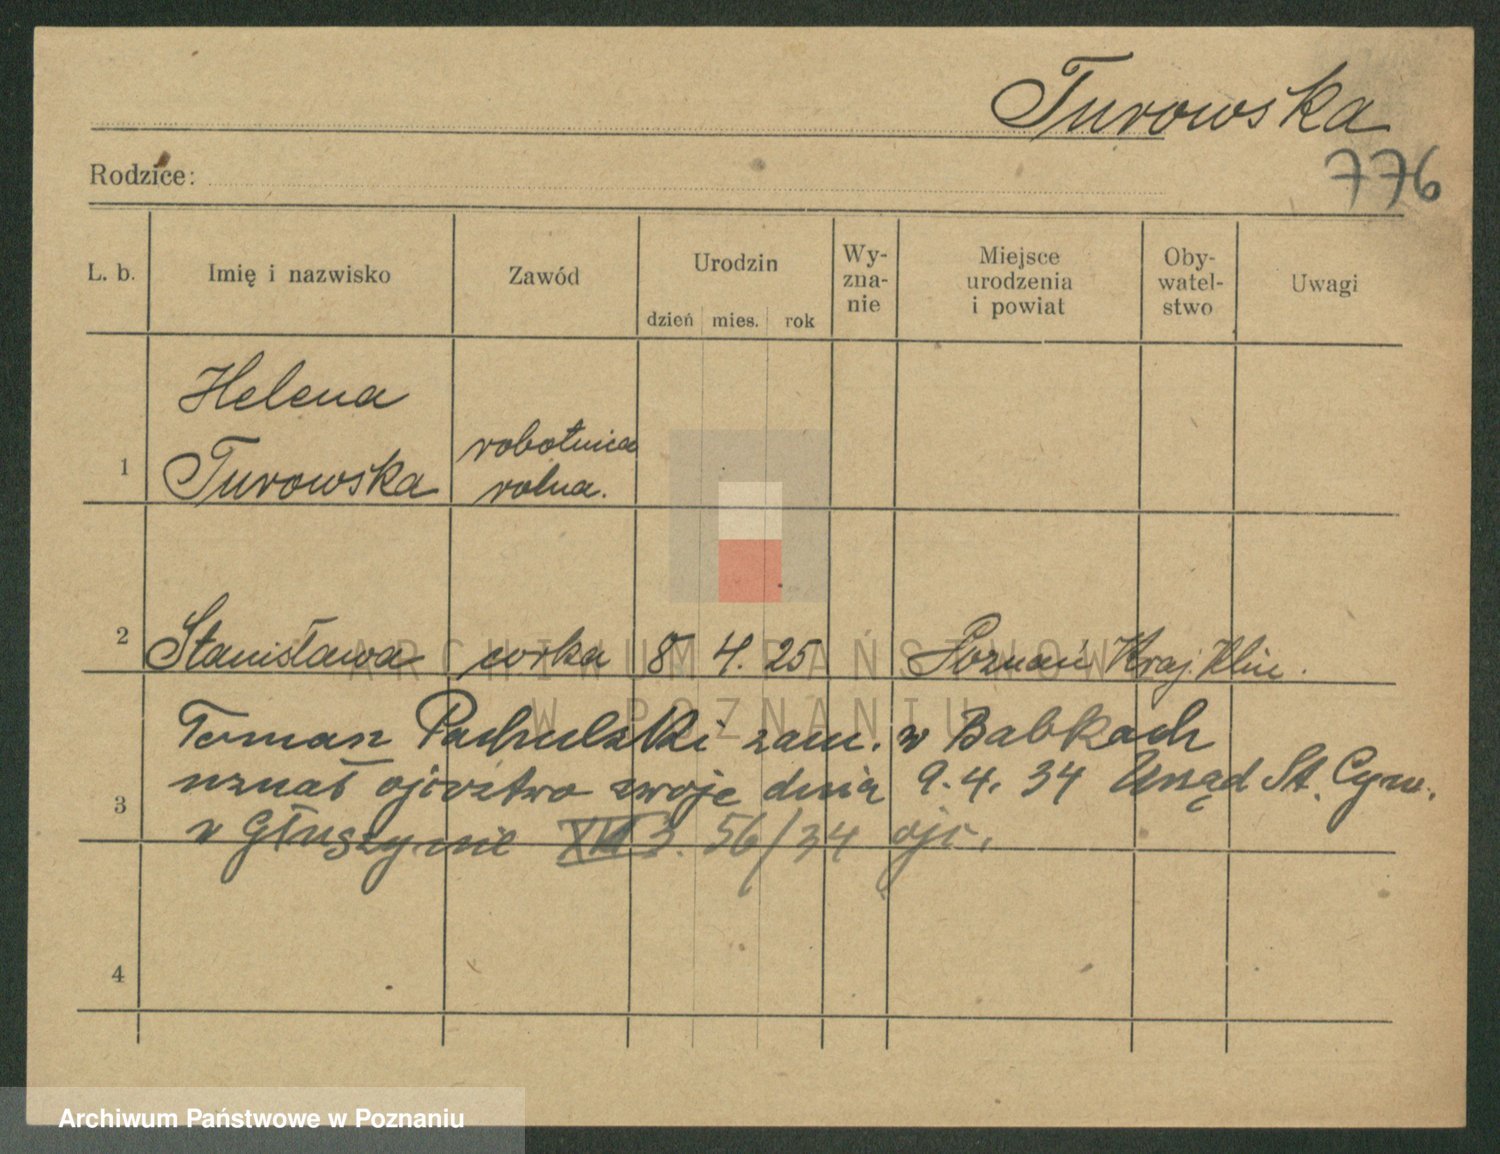 Turowska
776
Rodzice:
L. b.
Imię i nazwisko
Zawód
Urodzin
dzień mies. rok
Wy-
zna-
nie
Miejsce
urodzenia
i powiat
Oby-
watel-
stwo
Uwagi
Helena
1 Turowska
robotnica
rolna.
2 Stanisława córka 8 4. 25 Poznań Kraj.
Tomasz Pachulski zam. w Babkach
3
uznał ojcostwo swoje dnia 9.4. 34 Urząd St. Cyw.
w Głuszynie 56/34 ojc.
4
ARCHIWUM PAŃSTWOWE
W POZNANIU
Archiwum Państwowe w Poznaniu